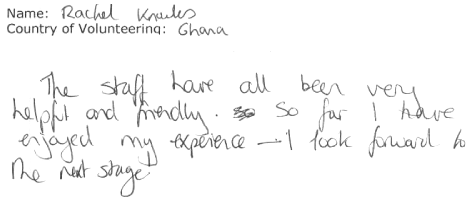 Name: Rachel Knowles
Country of Volunteering: Ghana
The staff have all been very
helpful and friendly. So far I have
enjoyed my experience - I look forward to
the next stage